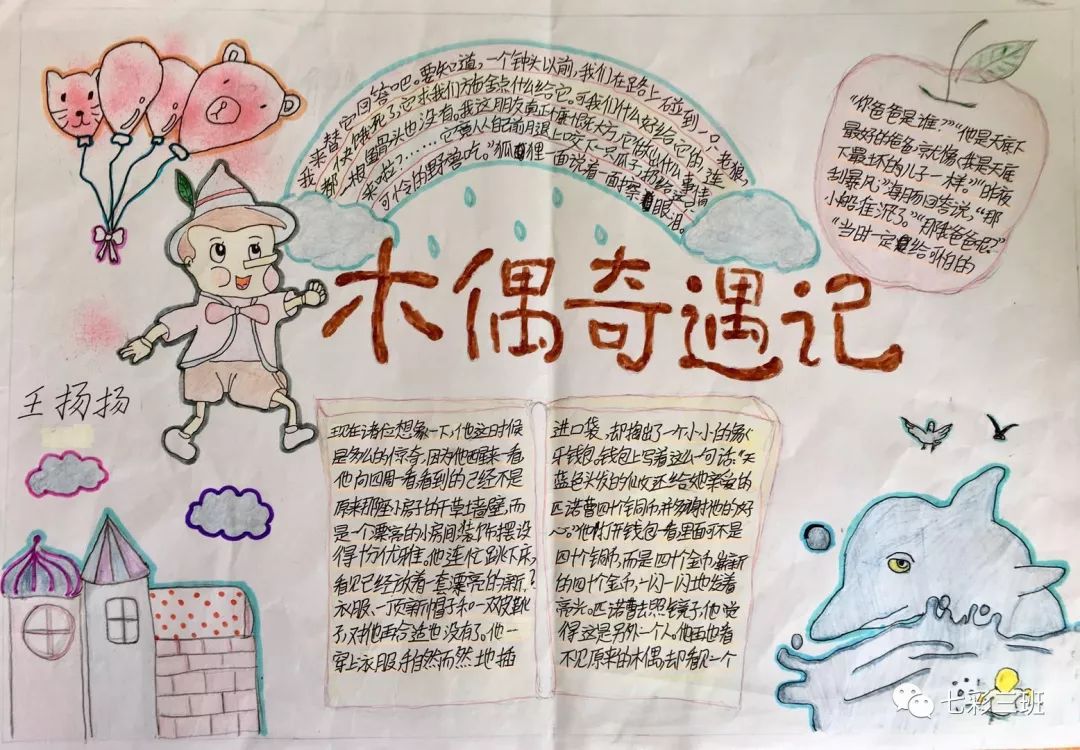 来替它回答吧。要知道，一个钟头以前，我们在路上碰到一只老狼，
都快饿死了，它求我们方面多点什么给它。可我们什么好给它的，连
我一根鱼骨头也没有。我这朋友真正慷慨大方，它做什么事情
来啦？……它竟从自己前腿上咬下一只爪子，扔给这只
可怜的野兽吃。”狐狸一面说着一面擦眼泪。
“你爸爸是谁？”“他是天底下
最好的爸爸，就像我是天底
下最坏的儿子一样。”“昨夜
刮暴风，”海豚回答说，“那
小船准沉了。”“那我爸爸呢？”
“当时一定给可怕的
木偶奇遇记
王扬扬
现在诸位想象一下，他这时候
是多么的惊奇，因为他醒来一看
他向四周一看，看到的已经不是
原来那座小房子的干草墙壁，而
是一个漂亮的小房间，装饰摆设
得十分优雅。他连忙跳下床，
看见已经放着一套漂亮的新
衣服、一顶新帽子和一双皮靴
子，对他再合适也没有了。他一
穿上衣服，手自然而然地插
进口袋，却掏出了一个小小的象
牙钱包。钱包上写着这么一句话：“天
蓝色头发的仙女还给她亲爱的
匹诺曹四十个铜币，并多谢他的好
心。”他打开钱包一看，里面可不是
四十个铜币，而是四十个金币，崭新
的四十个金币，一闪一闪地发着
亮光。匹诺曹去照镜子，他觉
得这是另外一个人。他再也看
不见原来的木偶，却看见一个
七彩三班